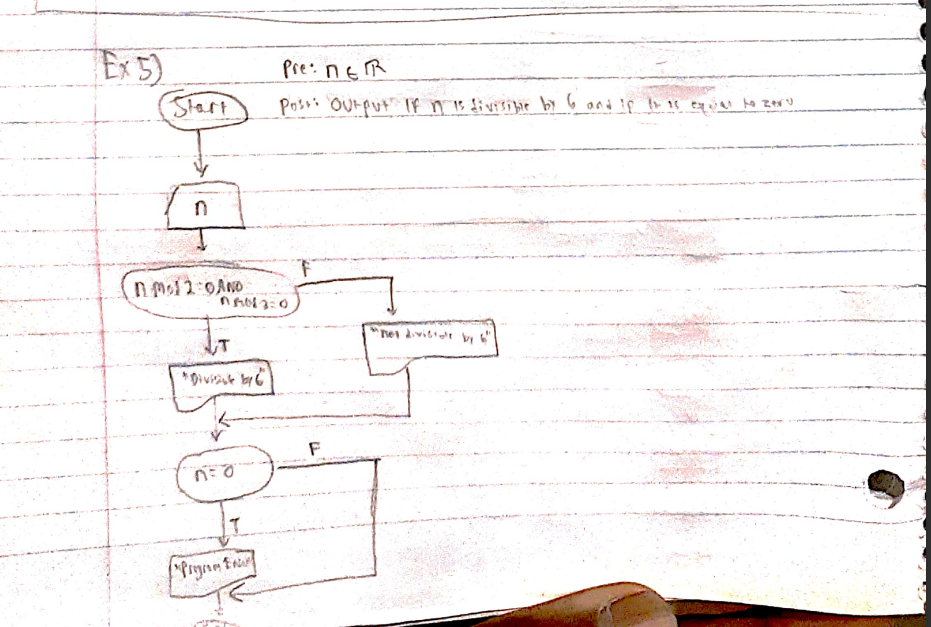 Ex 5)
Pre: n ∈ ℝ
Start
Post: Output if n is divisible by 6 and if it is equal to zero
n
F
n mod 2 = 0 AND
n mod 2 = 0
"Not divisible by 6"
T
"Divisible by 6"
F
n = 0
T
"Program